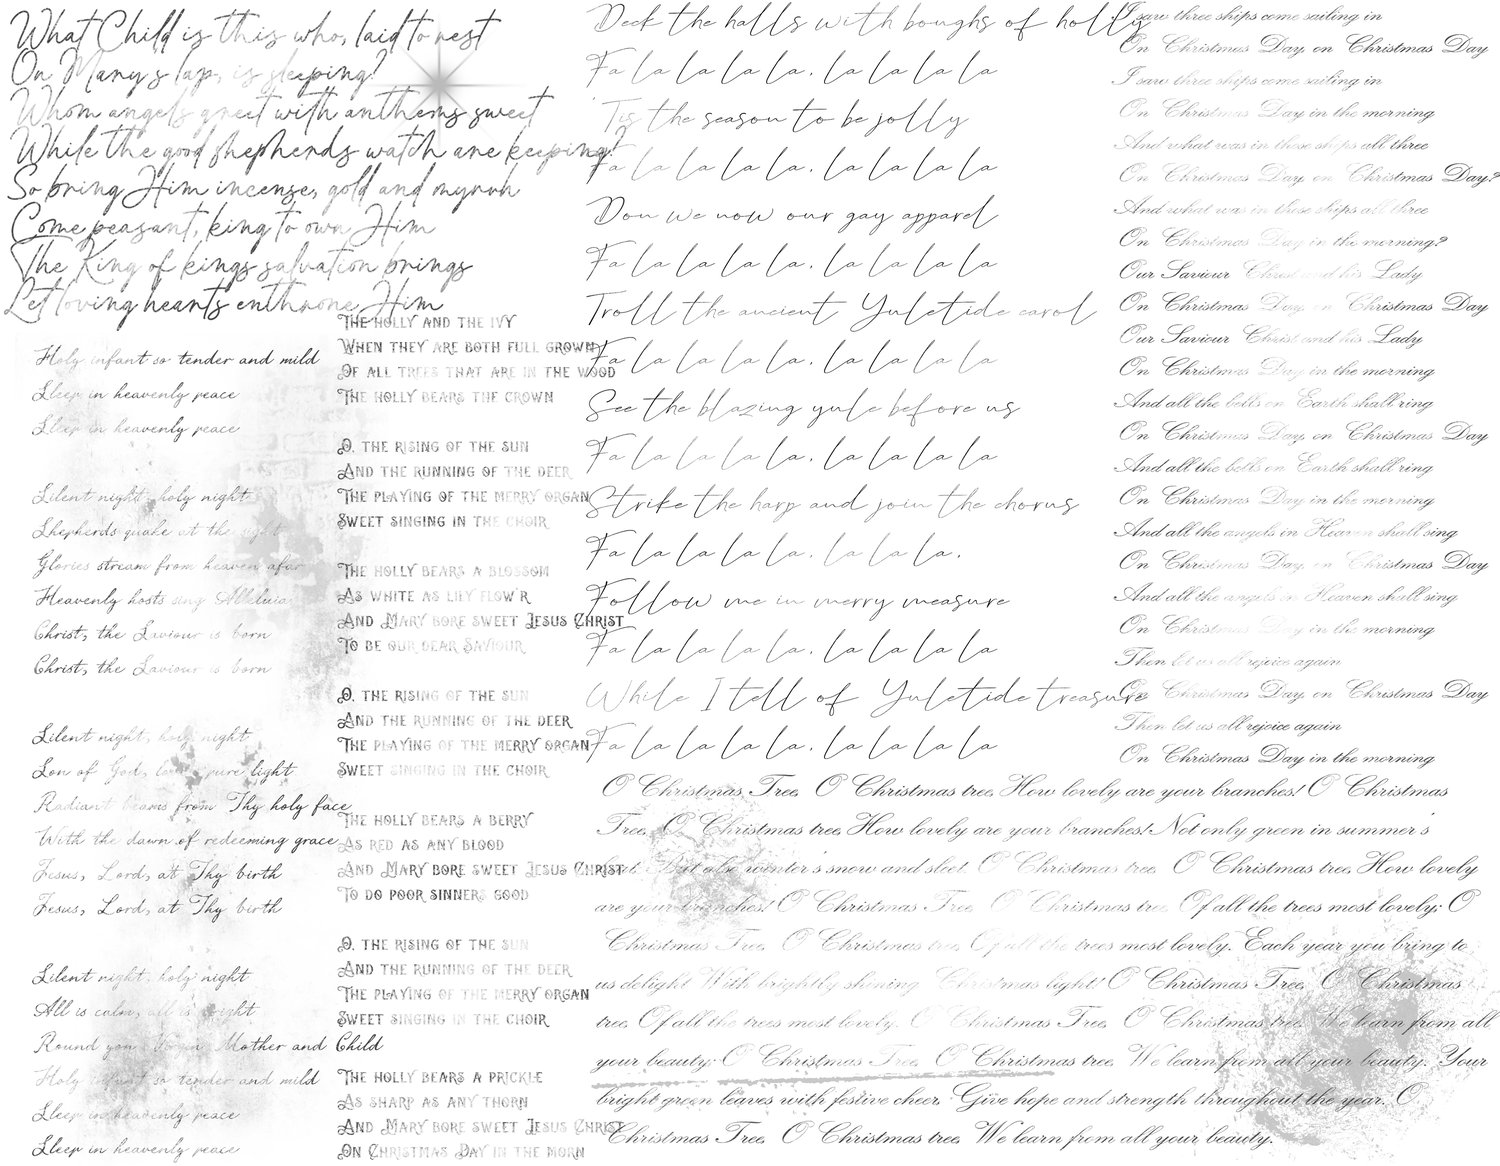 What Child is this who, laid to rest
On Mary's lap, is sleeping?
Whom angels greet with anthems sweet
While the good shepherds watch are keeping?
So bring Him incense, gold and myrrh
Come peasant, king to own Him
The King of kings salvation brings
Let loving hearts enthrone Him
Holy infant so tender and mild
Sleep in heavenly peace
Sleep in heavenly peace
Silent night, holy night
Shepherds quake at the sight
Glories stream from heaven afar
Heavenly hosts sing Alleluia
Christ, the Saviour is born
Christ, the Saviour is born
Silent night, holy night
Son of God, love's pure light
Radiant beams from Thy holy face
With the dawn of redeeming grace
Jesus, Lord, at Thy birth
Jesus, Lord, at Thy birth
Silent night, holy night
All is calm, all is bright
Round yon Virgin Mother and Child
Holy infant so tender and mild
Sleep in heavenly peace
Sleep in heavenly peace
The holly and the ivy
When they are both full grown
Of all trees that are in the wood
The holly bears the crown
O, the rising of the sun
And the running of the deer
The playing of the merry organ
Sweet singing in the choir
The holly bears a blossom
As white as lily flow'r
And Mary bore sweet Jesus Christ
To be our dear Saviour
O, the rising of the sun
And the running of the deer
The playing of the merry organ
Sweet singing in the choir
The holly bears a berry
As red as any blood
And Mary bore sweet Jesus Christ
To do poor sinners good
O, the rising of the sun
And the running of the deer
The playing of the merry organ
Sweet singing in the choir
The holly bears a prickle
As sharp as any thorn
And Mary bore sweet Jesus Christ
On Christmas Day in the morn
Deck the halls with boughs of holly
Fa la la la la, la la la la
'Tis the season to be jolly
Fa la la la la, la la la la
Don we now our gay apparel
Fa la la la la, la la la la
Troll the ancient Yuletide carol
Fa la la la la, la la la la
See the blazing yule before us
Fa la la la la, la la la la
Strike the harp and join the chorus
Fa la la la la, la la la la.
Follow me in merry measure
Fa la la la la, la la la la
While I tell of Yuletide treasure
Fa la la la la, la la la la
I saw three ships come sailing in
On Christmas Day, on Christmas Day
I saw three ships come sailing in
On Christmas Day in the morning
And what was in those ships all three
On Christmas Day, on Christmas Day?
And what was in those ships all three
On Christmas Day in the morning?
Our Saviour Christ and his Lady
On Christmas Day, on Christmas Day
Our Saviour Christ and his Lady
On Christmas Day in the morning
And all the bells on Earth shall ring
On Christmas Day, on Christmas Day
And all the bells on Earth shall ring
On Christmas Day in the morning
And all the angels in Heaven shall sing
On Christmas Day, on Christmas Day
And all the angels in Heaven shall sing
On Christmas Day in the morning
Then let us all rejoice again
On Christmas Day, on Christmas Day
Then let us all rejoice again
On Christmas Day in the morning
O Christmas Tree, O Christmas tree, How lovely are your branches! O Christmas
Tree, O Christmas tree, How lovely are your branches! Not only green in summer's
heat, But also winter's snow and sleet. O Christmas tree, O Christmas tree, How lovely
are your branches! O Christmas Tree, O Christmas tree, Of all the trees most lovely; O
Christmas Tree, O Christmas tree, Of all the trees most lovely. Each year you bring to
us delight With brightly shining Christmas light! O Christmas Tree, O Christmas
tree, Of all the trees most lovely. O Christmas Tree, O Christmas tree, We learn from all
your beauty; O Christmas Tree, O Christmas tree, We learn from all your beauty. Your
bright green leaves with festive cheer, Give hope and strength throughout the year. O
Christmas Tree, O Christmas tree, We learn from all your beauty.